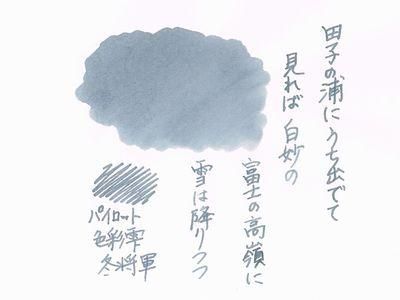 田子の浦にうち出でて
見れば白妙の
富士の高嶺に
雪は降りつつ
パイロット
色彩雫
冬将軍